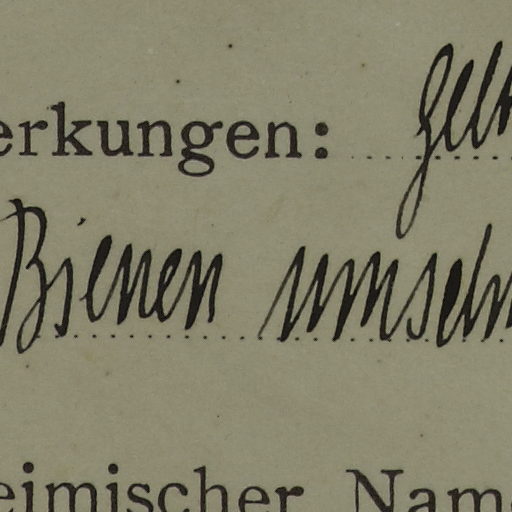 erkungen: gelb
Bienen umsch
eimischer Name